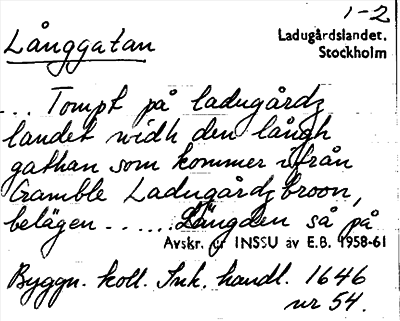 1-2
Långgatan
Ladugårdslandet,
Stockholm
... Tompt på ladugårdz
landet widh den långh
gathan som kommer ifrån
Gamble Ladugårdzbroon,
belägen ...... Längden så på
Avskr. ur INSSU av E.B. 1958-61
Byggn. koll. Ink. handl. 1646
nr 54.